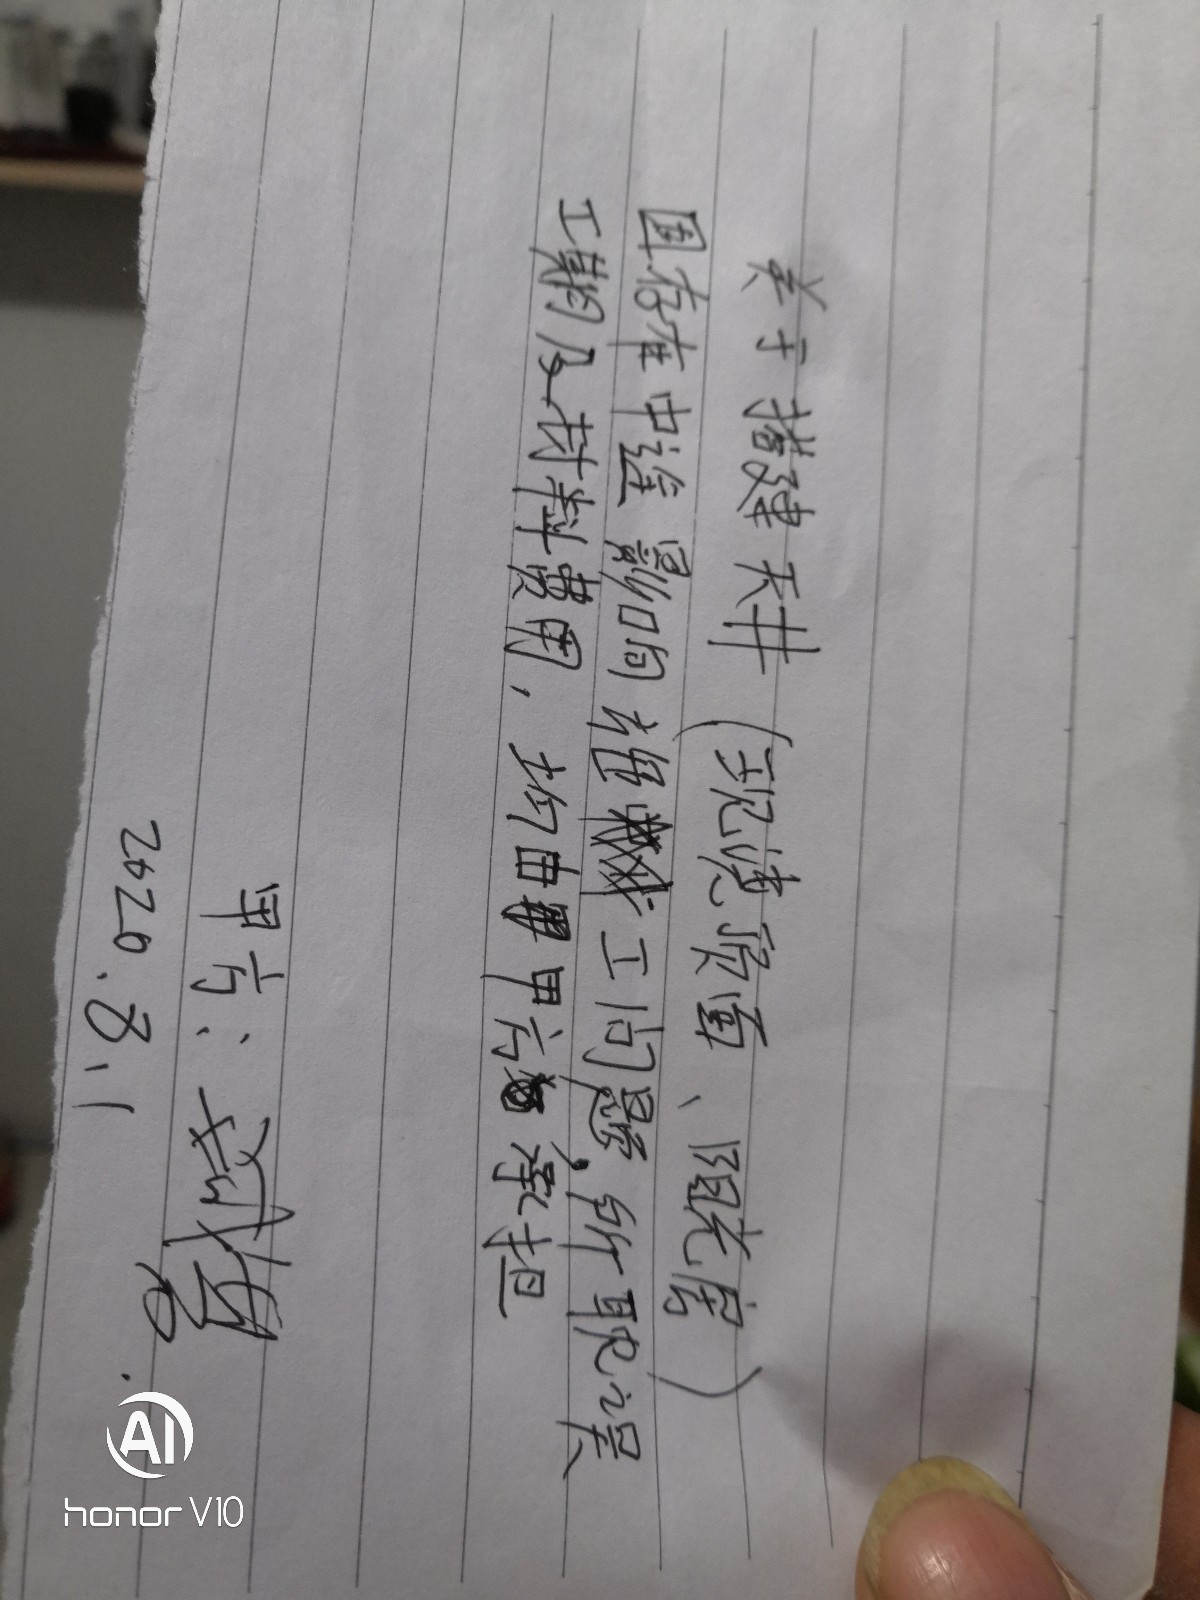 关于搭建天井(现浇顶面、阳光房)
因存在中途影响堆工问题,所耽误
工期及材料费用,均由甲方承担
甲方:
2020.8.1
AI
honor V10